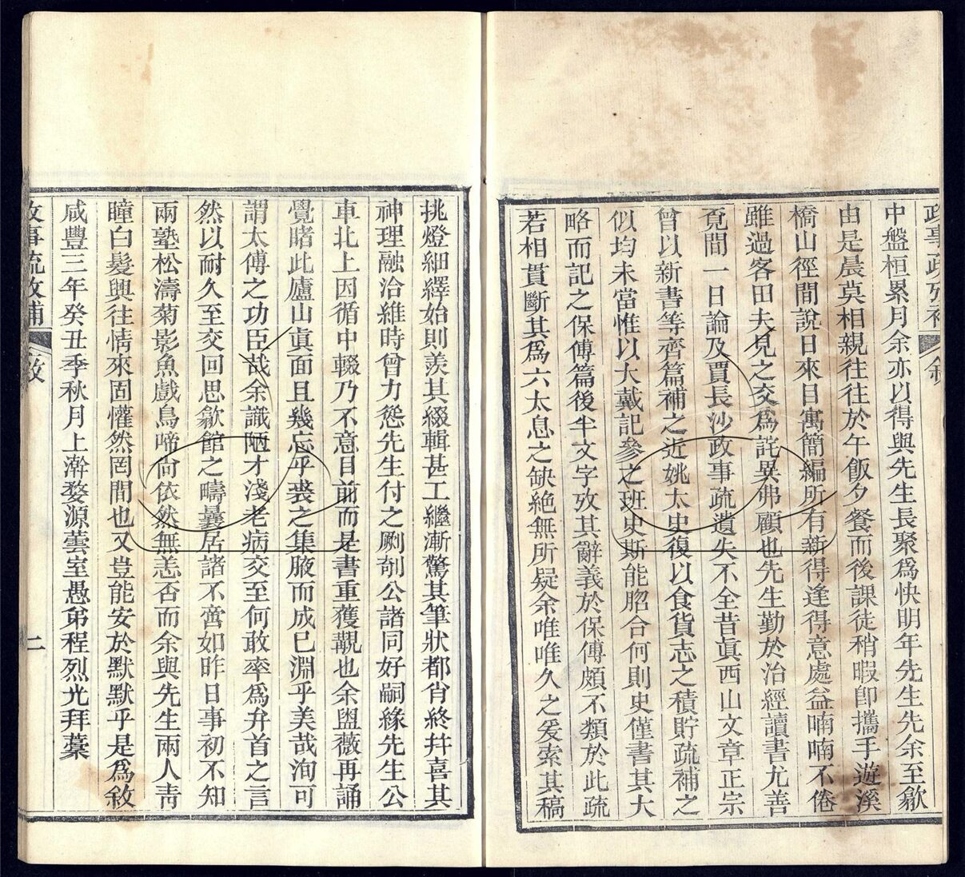 政事疏攷補 敘
中盤桓累月余亦以得與先生長聚爲快明年先生先余至歙
由是晨莫相親往往於午飯夕餐而後課徒稍暇卽攜手遊溪
橋山徑間說日來目寓簡編所有新得逢得意處益喃喃不倦
雖過客田夫見之交爲詫異弗顧也先生勤於治經讀書尤善
覓間一日論及賈長沙政事疏遺失不全昔眞西山文章正宗
曾以新書等齊篇補之近姚太史復以食貨志之積貯疏補之
似均未當惟以大戴記參之班史斯能脗合何則史僅書其大
略而記之保傅篇後半文字攷其辭義於保傅頗不類於此疏
若相貫斷其爲六太息之缺絕無所疑余唯唯久之爰索其稿
挑燈細繹始則羨其綴輯甚工繼漸驚其筆狀都肖終幷喜其
神理融洽維時曾力慫先生付之劂剞公諸同好嗣緣先生公
車北上因循中輟乃不意目前而是書重獲覩也余盥薇再誦
覺睹此廬山眞面且幾忘乎裘之集腋而成已淵乎美哉洵可
謂太傅之功臣哉余識陋才淺老病交至何敢率爲弁首之言
然以耐久至交回思歙館之疇曩居諸不啻如昨日事初不知
兩塾松濤菊影魚戲鳥啼尙依然無恙否而余與先生兩人靑
瞳白髮興往情來固懽然罔間也又豈能安於默默乎是爲敘
咸豐三年癸丑季秋月上澣婺源蕓室愚弟程烈光拜藁
政事疏攷補 敘 二